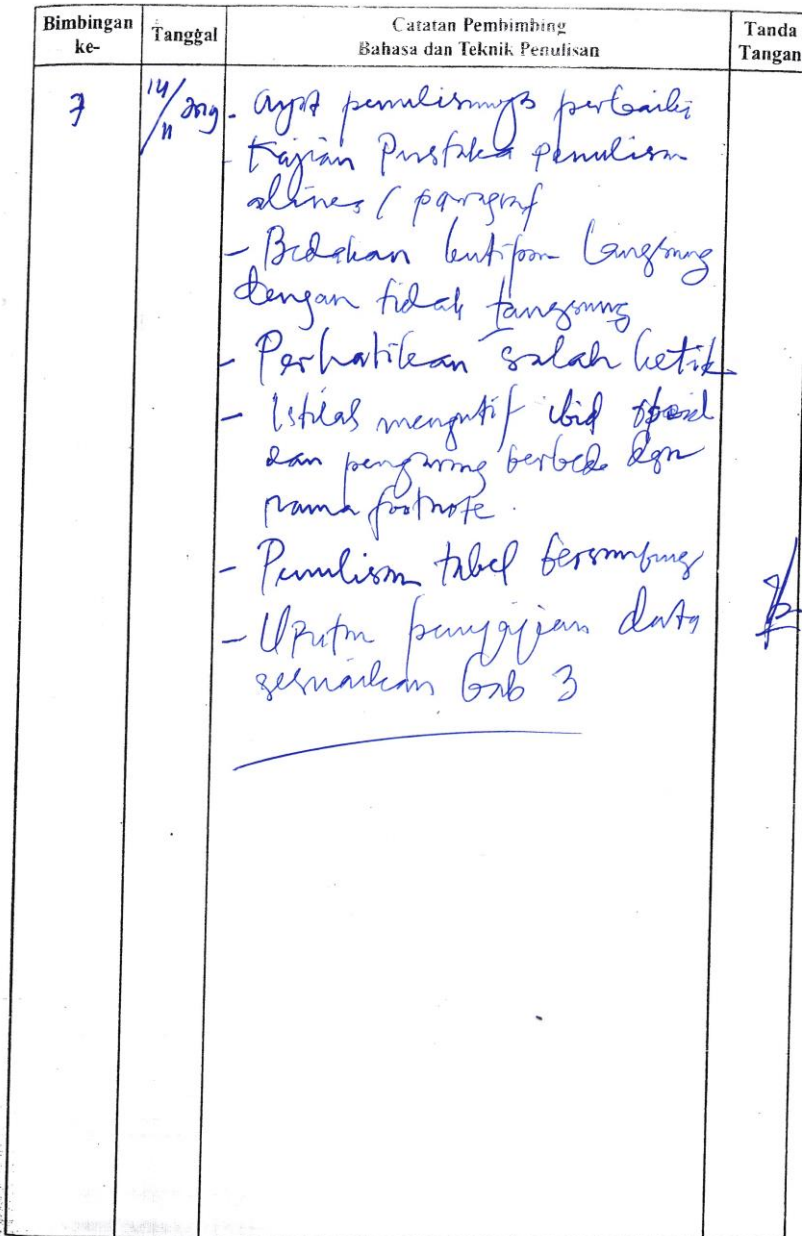 Bimbingan ke-
Tanggal
Catatan Pembimbing
Bahasa dan Teknik Penulisan
Tanda Tangan
7
14/11 2019
- ayat penulisannya perbaiki
- Kajian Pustaka penulisan
alinea / paragraf
- Bedakan kutipan langsung
dengan tidak langsung
- Perhatikan salah ketik
- Istilah mengutif ibid
dan berbeda dgn
nama footnote.
- Penulisan tabel bersambung
- Urutan penyajian data
sesuaikan bab 3